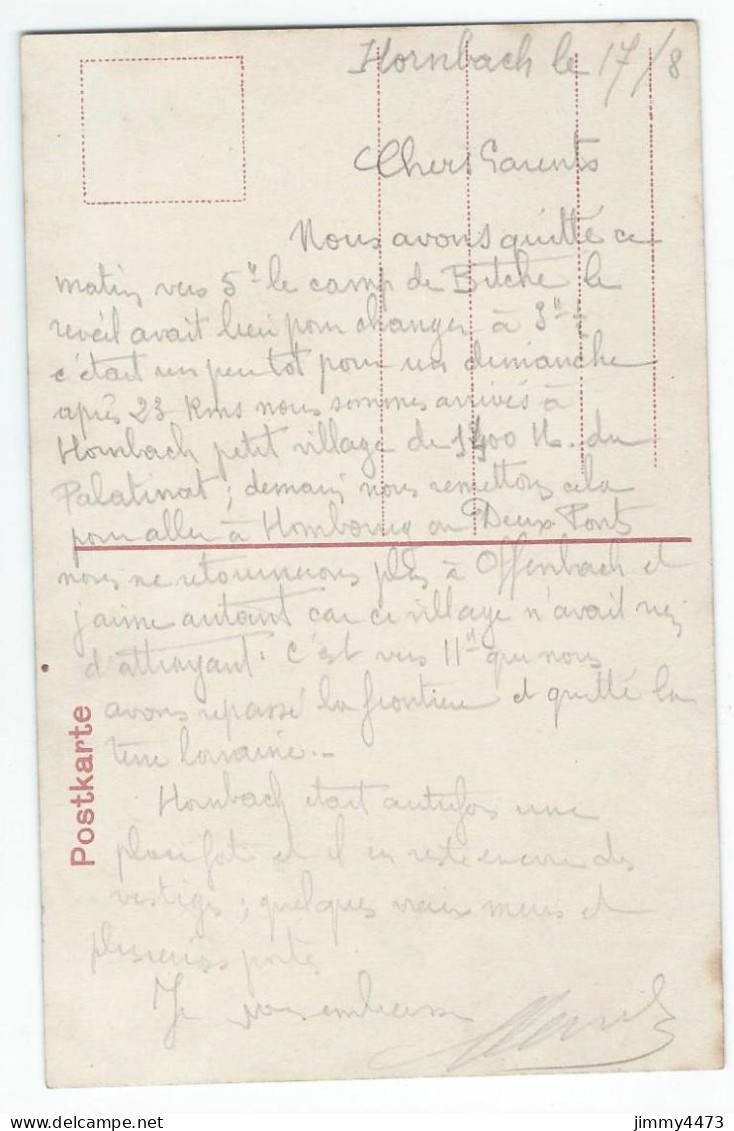 Hornbach le 17/8
Chers Parents
Nous avons quitté ce
matin vers 5h le camp de Bitche le
reveil avait lieu pour changer à 3h ½
c'était un peu tot pour un dimanche
après 23 Kms nous sommes arrivés à
Hornbach petit village de 1400 H. du
Palatinat ; demain nous remettons cela
pour aller à Hombourg ou Deux Ponts
nous ne retournerons plus à Offenbach et
j'aime autant car ce village n'avait rien
d'attrayant. C'est vers 11h que nous
avons repassé la frontière et quitté la
terre lorraine.-
Hornbach était autrefois une
place fort et il en reste encore des
vestiges ; quelques vieux murs et
plusieurs portes
Je vous embrasse
Postkarte
jimmy4473